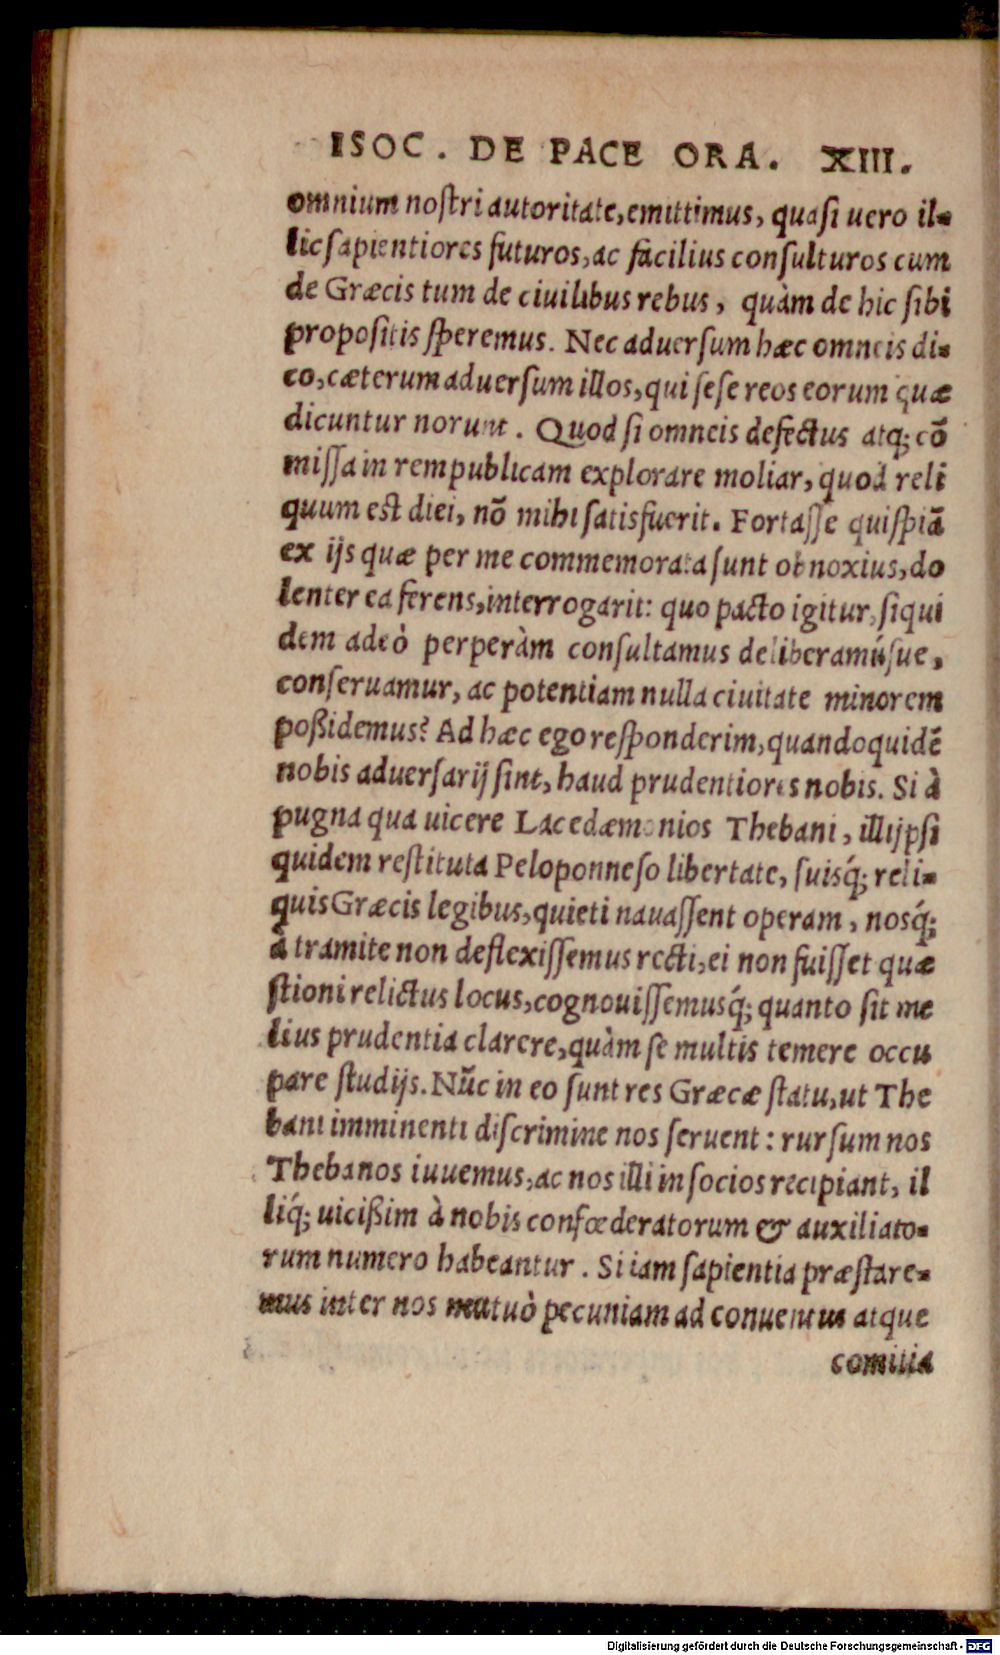 ISOC. DE PACE ORA. XIII.
omnium noſtri autoritate, emittimus, quaſi uero il-
lic ſapientiores futuros, ac facilius conſulturos cum
de Græcis tum de ciuilibus rebus, quàm de hic ſibi
propoſitis ſperemus. Nec aduerſum hæc omneis di-
co, cæterum aduerſum illos, qui ſeſe reos eorum quæ
dicuntur norunt. Quod ſi omneis defectus atq; cõ
miſſa in rempublicam explorare moliar, quod reli
quum est diei, nõ mihi ſatisfuerit. Fortaſſe quiſpiã
ex ijs quæ per me commemorata ſunt obnoxius, do
lenter ea ferens, interrogarit: quo pacto igitur, ſiqui
dem adeò perperàm conſultamus deliberamúſue,
conſeruamur, ac potentiam nulla ciuitate minorem
poßidemus? Ad hæc ego reſponderim, quandoquidẽ
nobis aduerſarij ſint, haud prudentiores nobis. Si à
pugna qua uicere Lacedæmonios Thebani, illijpſi
quidem reſtituta Peloponneſo libertate, ſuisq́; reli-
quis Græcis legibus, quieti nauaſſent operam, nosq́;
à tramite non deflexiſſemus recti, ei non fuiſſet quæ
ſtioni relictus locus, cognouiſſemusq́; quanto ſit me
lius prudentia clarere, quàm ſe multis temere occu
pare ſtudijs. Nũc in eo ſunt res Græcæ ſtatu, ut The
bani imminenti diſcrimine nos ſeruent: rurſum nos
Thebanos iuuemus, ac nos illi in ſocios recipiant, il
liq́; uicißim à nobis confœderatorum & auxiliato-
rum numero habeantur. Si iam ſapientia præſtare-
mus inter nos mutuò pecuniam ad conuentus atque
comitia
Digitalisierung gefördert durch die Deutsche Forschungsgemeinschaft - DFG